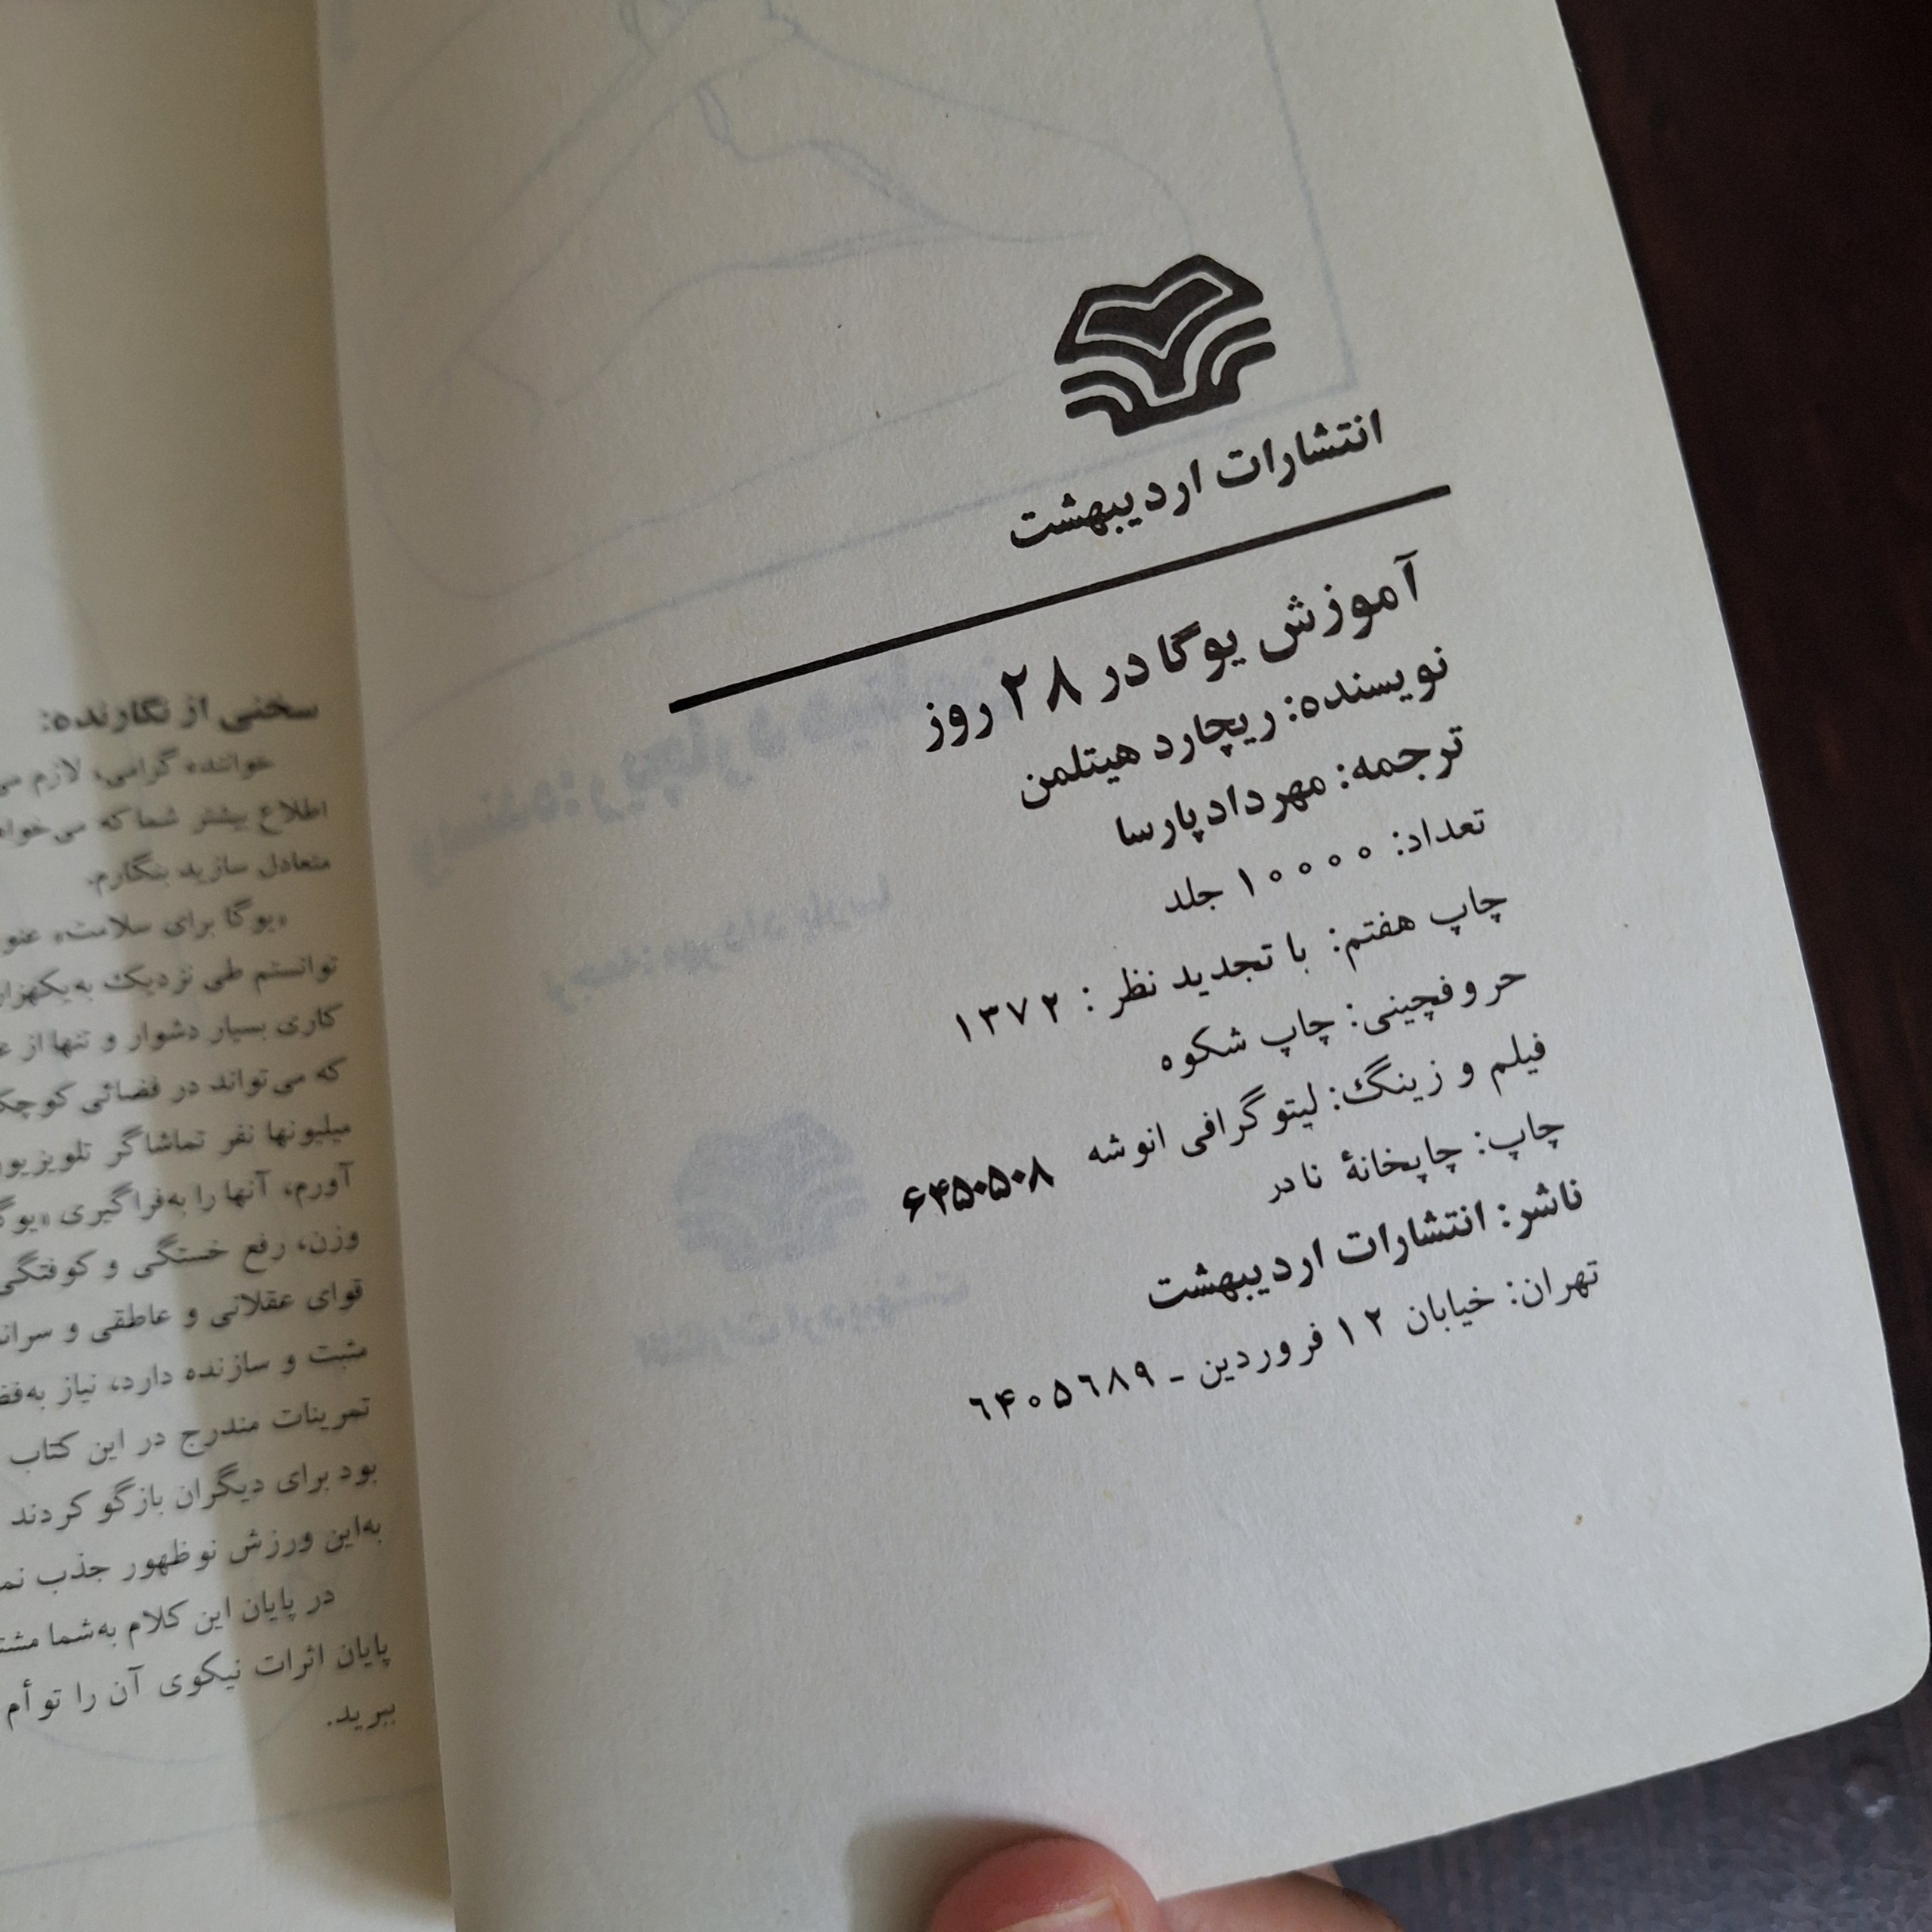 انتشارات اردیبهشت
آموزش یوگا در ۲۸ روز
نویسنده: ریچارد هیتلمن
ترجمه: مهرداد پارسا
تعداد: ۱۰۰۰۰ جلد
چاپ هفتم: با تجدید نظر : ۱۳۷۲
حروفچینی: چاپ شکوه
فیلم و زینگ: لیتوگرافی انوشه ۶۴۵۰۵۰۸
چاپ: چاپخانهٔ نادر
ناشر: انتشارات اردیبهشت
تهران: خیابان ۱۲ فروردین ـ ۶۴۰۵۶۸۹
سخنی از نگارنده:
خواننده گرامی، لازم
اطلاع بیشتر شما که
متعادل سازید بنگارم.
«یوگا برای سلامت»
توانستم طی نزدیک به
کاری بسیار دشوار و تنها از
که می‌تواند در فضائی
میلیونها نفر تماشاگر
آورم، آنها را به‌فراگیری
وزن، رفع خستگی و کوفتگی
قوای عقلانی و عاطقی و
مثبت و سازنده دارد، نیاز
تمرینات مندرج در این کتاب
بود برای دیگران بازگو کردند
به‌این ورزش نوظهور جذب
در پایان این کلام به‌شما
پایان اثرات نیکوی آن را توأم
ببرید.